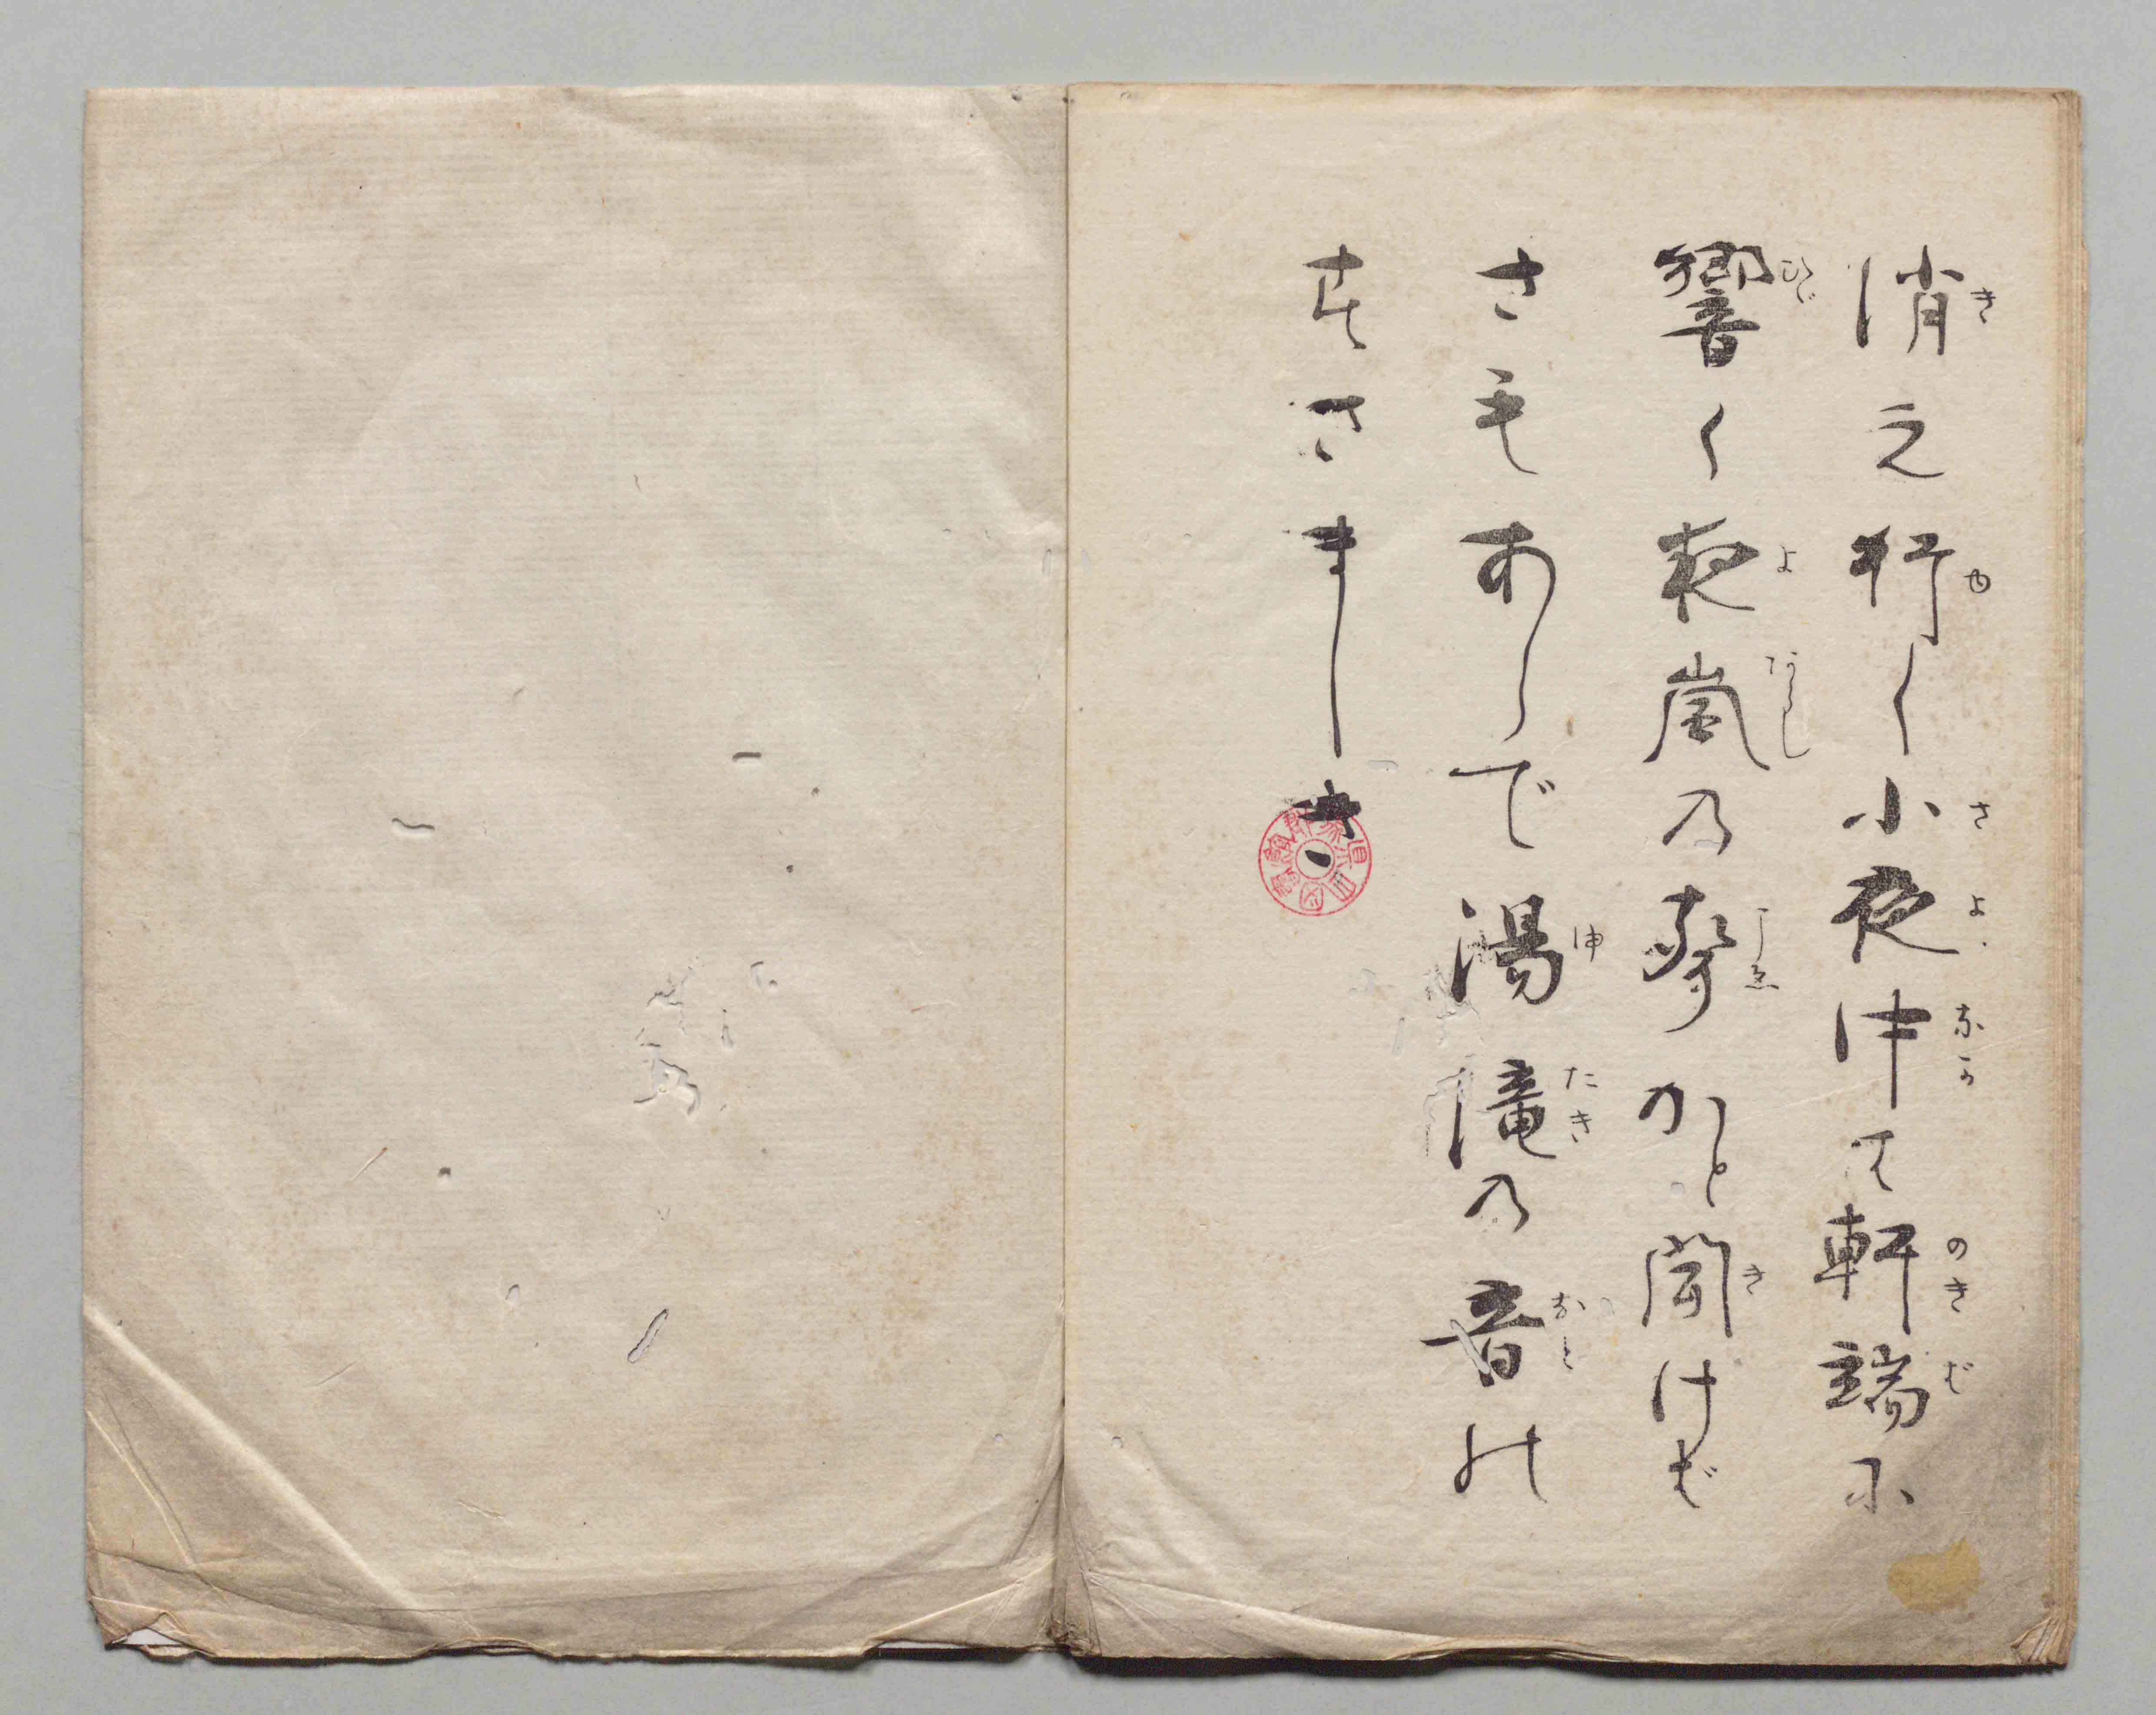 消え行く小夜中は軒端に
響く夜嵐の聲かと聞けば
さもあらで湯滝の音の
すさましき